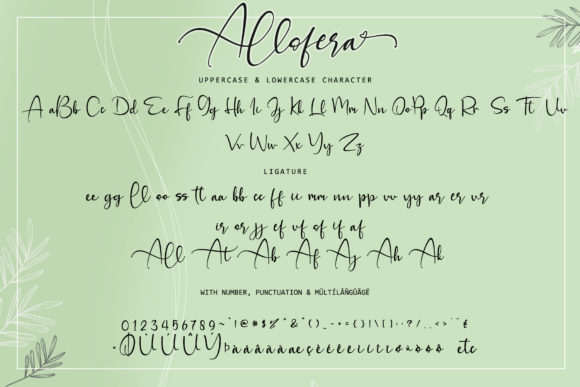 Allofera
UPPERCASE & LOWERCASE CHARACTER
A aBb Cc Dd Ee Ff Gg Hh Ii Jj Kk Ll Mm Nn Oo Pp Qq Rr Ss Tt Uu
Vv Ww Xx Yy Zz
LIGATURE
ee gg ll oo ss tt aa bb cc ff ii mm nn pp vv yy ar er ur
ir or jj ef uf of if af
All At Ab Af Aj Ah Ak
WITH NUMBER, PUNCTUATION & MÜLTÍLÂÑGÜÃGË
0123456789~`!@#$%^&*()_-+={}|\[]:;?/.,<>
etc